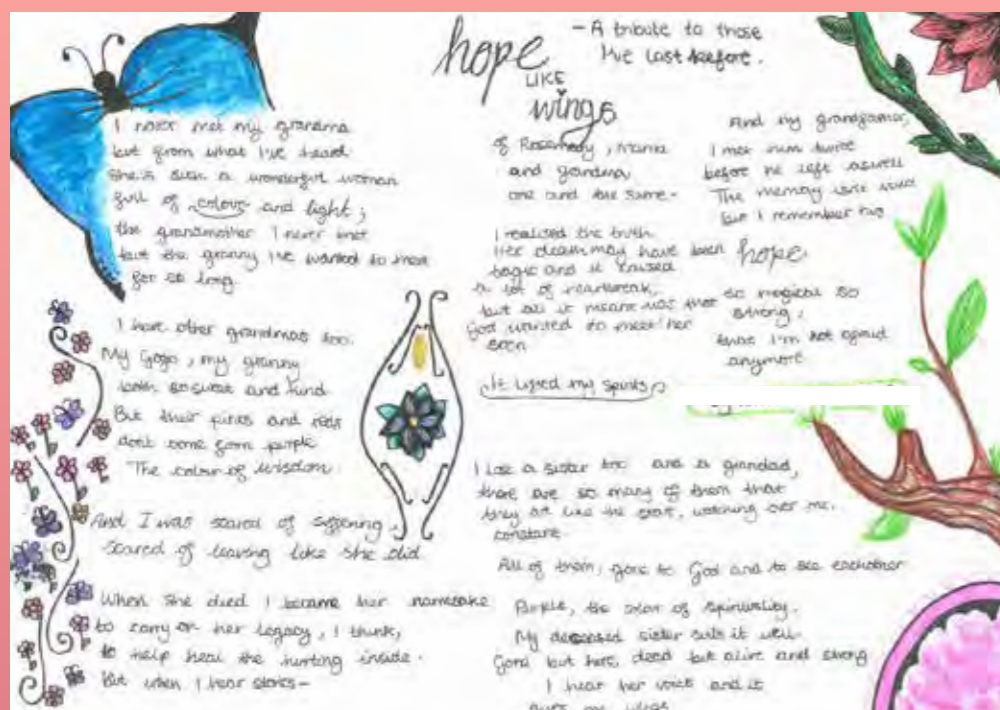 hope
LIKE
wings
- A tribute to those
I've lost before.
I never met my grandma
but from what I've heard
she is such a wonderful woman
full of colour and light;
the grandmother I never met
but the granny I've wanted to meet
for so long.
I have other grandmas too.
My Gogo, my granny
both so sweet and kind
But their pinks and reds
don't come from purple
The colour of wisdom.
And I was scared of suffering,
scared of leaving like she did
When she died I became her namesake
to carry on her legacy, I think,
to help heal the hurting inside.
But when I hear stories-
of Rosemedy, mama
and grandma,
one and the same-
I realised the truth.
Her death may have been
tragic and it caused
a lot of heartbreak,
but all it meant was that
God wanted to meet her
soon
It lifted my spirits
And my grandfather,
I met him twice
before he left aswell
The memory isn't
but I remember his
hope
so magical so
strong,
that I'm not afraid
anymore
I lost a sister too and a grandad,
there are so many of them that
they are like the stars, watching over me,
constant.
All of them, gone to God and to see eachother
Purple, the color of spirituality.
My deceased sister suits it well
Gone but here, dead but alive and strong
I hear her voice and it
gives me wings